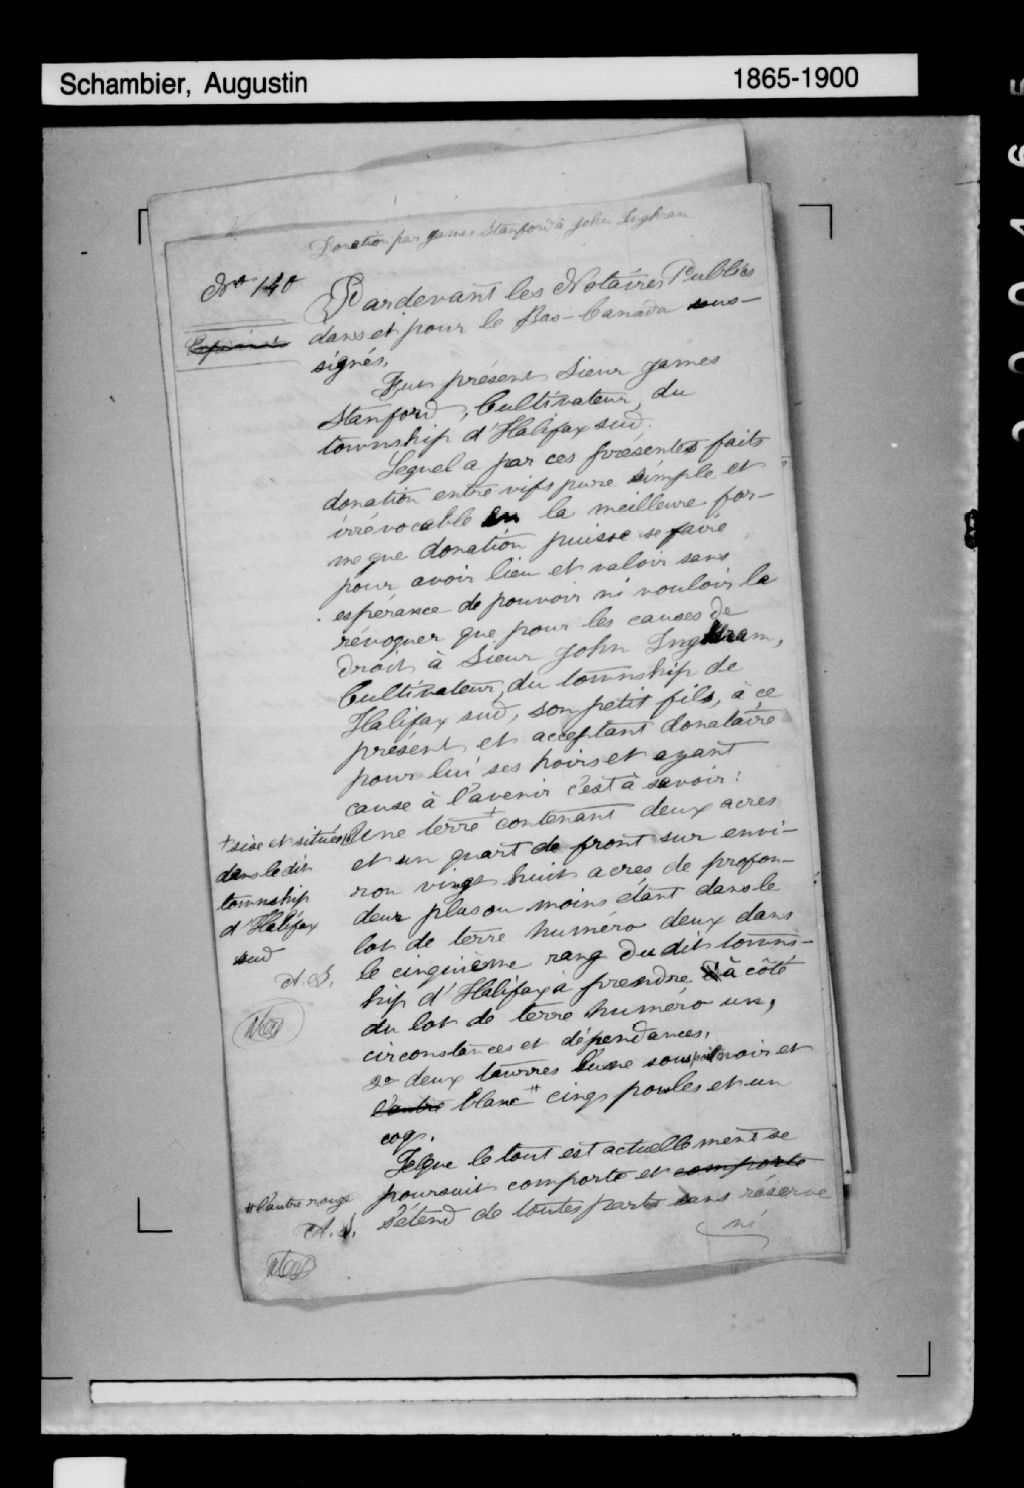 Schambier, Augustin 1865-1900
Donation par James Stanford à John Inghram
No 140
Expédiée
Pardevant les Notaires Publics
dans et pour le Bas-Canada sous-
signés,
Fut présent Sieur James
Stanford, Cultivateur, du
township d'Halifax sud.
Lequel a par ces présentes faits
donation entre vifs pure simple et
irrévocable en la meilleure for-
me que donation puisse se faire
pour avoir lieu et valoir sans
espérance de pouvoir ni vouloir la
révoquer que pour les causes de
droit à Sieur John Inghram,
Cultivateur, du township de
Halifax sud, son petit fils, à ce
présent et acceptant donataire
pour lui ses hoirs et ayant
cause à l'avenir c'est à savoir:
Une terre + contenant deux acres
et un quart de front sur envi-
ron vingt huit acres de profon-
deur plus ou moins étant dans le
lot de terre huméro deux dans
le cinquième rang du dit towns-
hip d'Halifax à prendre à côté
du lot de terre huméro un,
circonstances et dépendances.
2o deux taures l'une sous poil noir et
l'autre blanc # cinqs poules et un
coq.
Telque le tout est actuellement se
poursuit comporte et comporte
s'étend de toutes parts sans réserve
ni
+ sise et située
dans le dit
township
d'Halifax
sud
A. S.
# l'autre rouge
A. S.